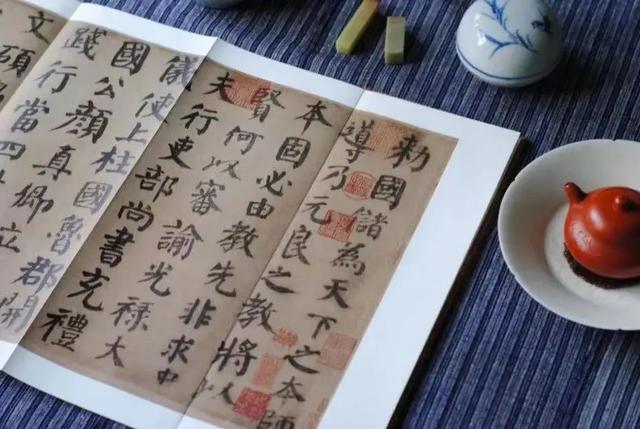 勅國儲為天下之本師
導乃元良之教將以
本固必由教先非求
賢何以審諭光祿大
夫行吏部尚書充禮
儀使上柱國魯郡開
國公顏真卿立
踐行當四
文碩